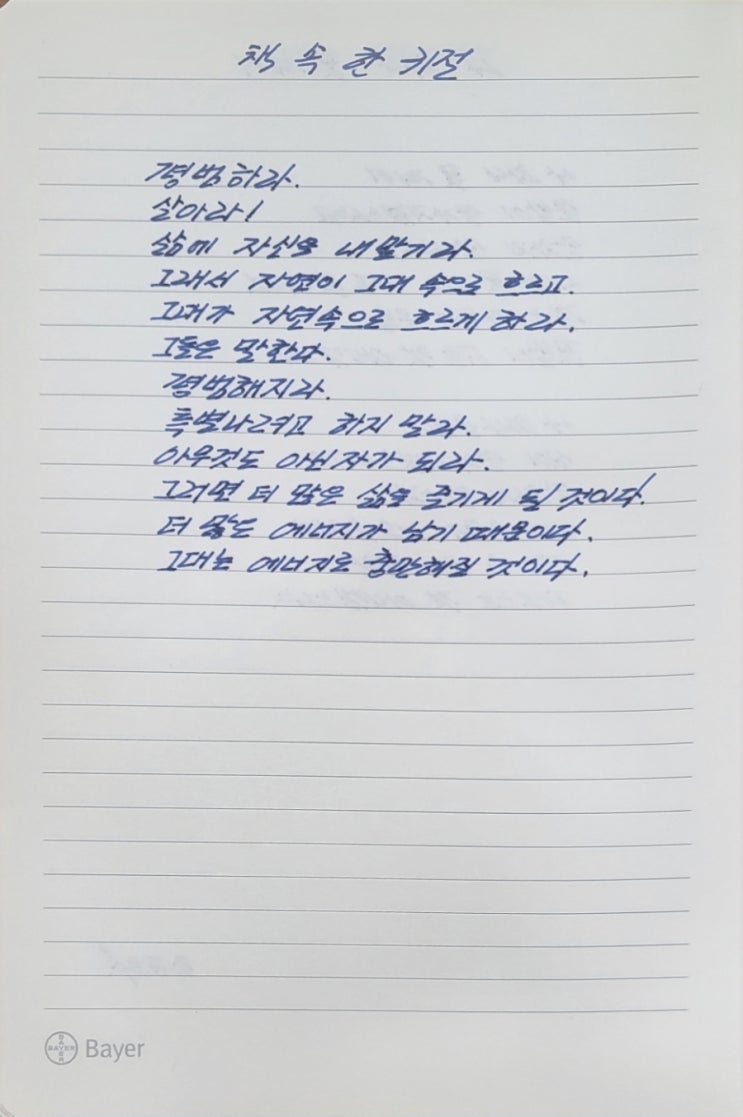 책 속 한 귀절
평범하라.
살아라!
삶에 자신을 내맡기라.
그래서 자연이 그대 속으로 흐르고.
그대가 자연속으로 흐르게 하라.
그들은 말한다.
평범해지라.
특별나려고 하지 말라.
아무것도 아닌자가 되라.
그러면 더 많은 삶을 즐기게 될 것이다.
더 많은 에너지가 남기 때문이다.
그대는 에너지로 충만해질 것이다.
BAYER
Bayer